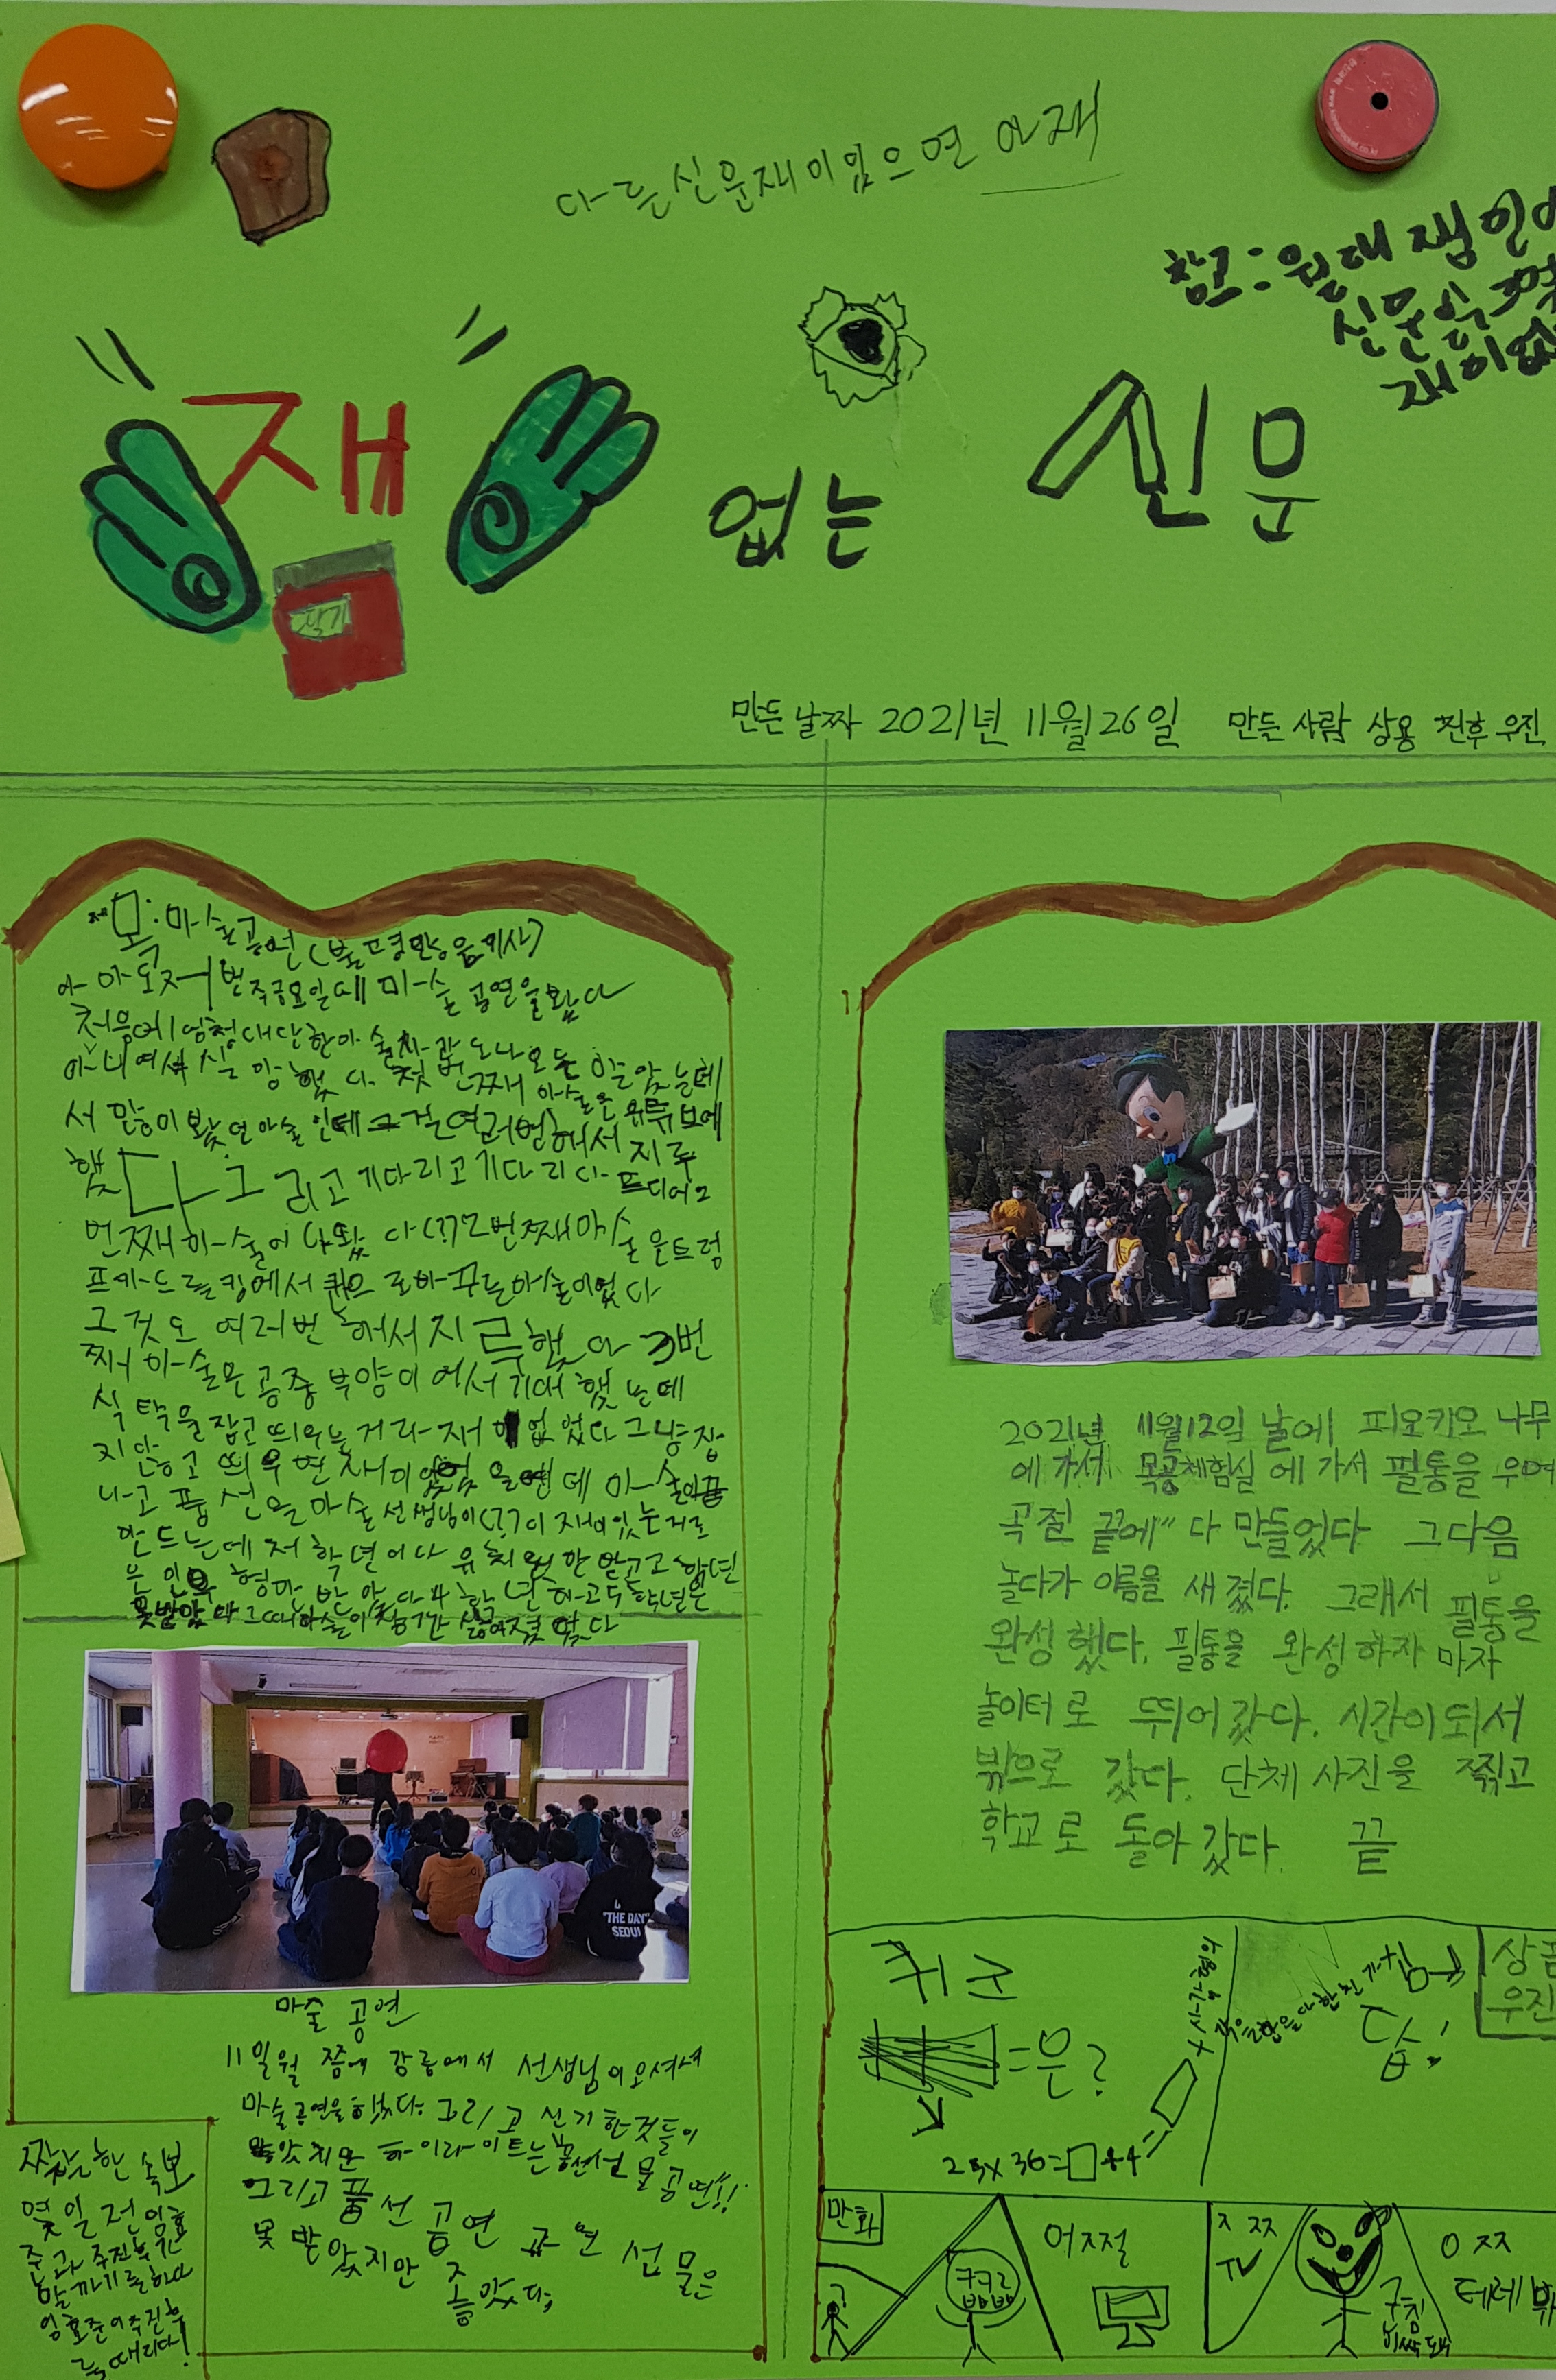 다른 신문 재미있으면 아재
참고: 원래 잼 있
신문
재미없
재 없는 신문
딸기
만든 날짜 2021년 11월 26일 만든 사람 상용 진후 우진
제목: 마술공연
아 아 도 저번 주 금요일에 마술 공연을 봤다
처음에 엄청 대단한 마술사라도 나오는 줄 알았는데
아니여서 실망했다. 첫번째 마술은 유튜브에
서 많이 봤던 마술인데 그걸 여러번해서 지루
했다 그리고 기다리고 기다리다 드디어 2
번째 마술이 나왔다(??) 2번째 마술은 트럼
프카드를 킹에서 퀸으로 바꾸는 마술이었다
그것도 여러번 해서 지루했다 3번
째 마술은 공중 부양이어서 기대했는데
식탁을 잡고 띄우는 거라 재미 없었다 그냥 잡
지 않고 띄우면 재미있었을텐데 마술이 끝
나고 풍선을 마술 선생님이(??)이 재미있는거로
만드는데 저학년이나 유치원만 받고 고학년
은 민우 형만 받았다 4학년하고 5학년은
못받았다 그때 마술이 잠깐 싫어졌었다
"THE DAY"
SEOUL
마술 공연
11일월 쯤에 강릉에서 선생님이 오셔서
마술공연을 했다. 그리고 신기한것들이
많았지만 하이라이트는 풍선선물 공연!!
그리고 풍선 공연 공연 선물은
못 받았지만 좋았다;
짭짤한 속보
몇일 전 임효
준과 주진후
알까기를 하다
임효준이 주진후
를 때리다!
2021년 11월 12일 날에 피오키오 나무
에 가서 목공체험실에 가서 필통을 우여
곡절 끝에" 다 만들었다 그다음
놀다가 이름을 새겼다. 그래서 필통을
완성했다. 필통을 완성하자 마자
놀이터로 뛰어갔다. 시간이 되서
밖으로 갔다. 단체 사진을 찍고
학교로 돌아 갔다. 끝
퀴즈
=은?
25x36=□+4=
답!
상품
우진
만화
?
어쩔
ㅈ ㅉ
TV
어 ㅉ
테레비